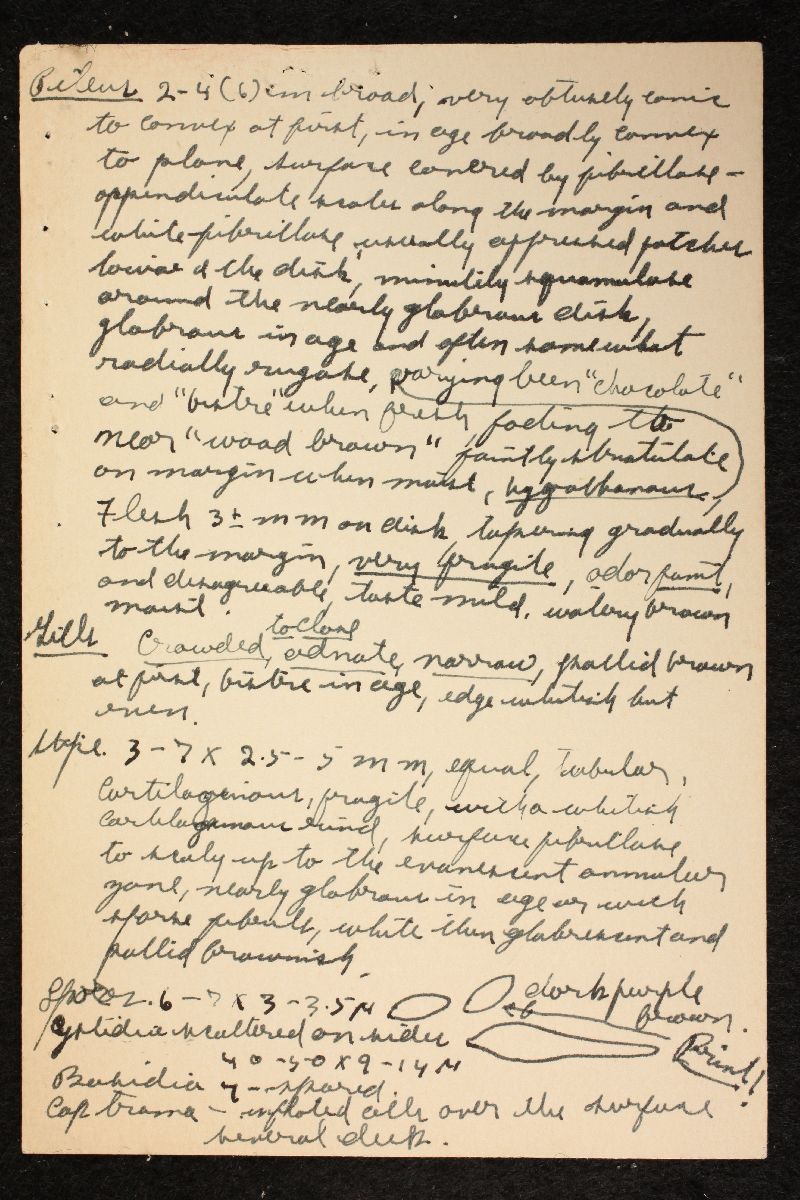 Pileus 2-4(6) cm broad, very obtusely conic
to convex at first, in age broadly convex
to plane, surface covered by fibrillose-
appendiculate scales along the margin and
white-fibrillose usually appressed patches
toward the disk, minutily squamulose
around the nearly glabrous disk,
glabrous in age and often somewhat
radially rugose, varying been "chocolate"
and "bistre" when fresh, fading to
near "wood brown" faintly striatulate
on margin when moist, hygrophanous,
Flesh 3± mm on disk, tapering gradually
to the margin, very fragile, odor faint,
and disagreeable, taste mild, watery brown
moist.
Gills Crowded, to close adnate, narrow, pallid brown
at first, bistre in age, edge whitish but
even.
Stipe. 3-7 x 2.5-5 mm, equal, tubular,
cartilaginous, fragile, with a whitish
cartilaginous rind, surface fibrillose
to scaly up to the evanescent annular
zone, nearly glabrous in age or with
sparse fibrils, white then glabrescent and
pallid brownish.
Spores 6-7 x 3-3.5 μ dark purple
brown.
Print!
Cystidia scattered on sides
40-50 x 9-14 μ
Basidia 4-spored.
Cap trama - inflated cells over the surface
several deep.